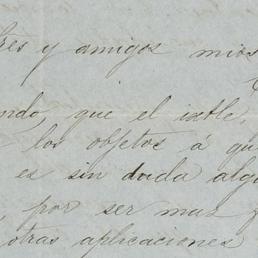 res y amigos mios
ndo, que el ixtle,
los objetos á qu
es sin duda algu
, por ser mas f
otras aplicaciones